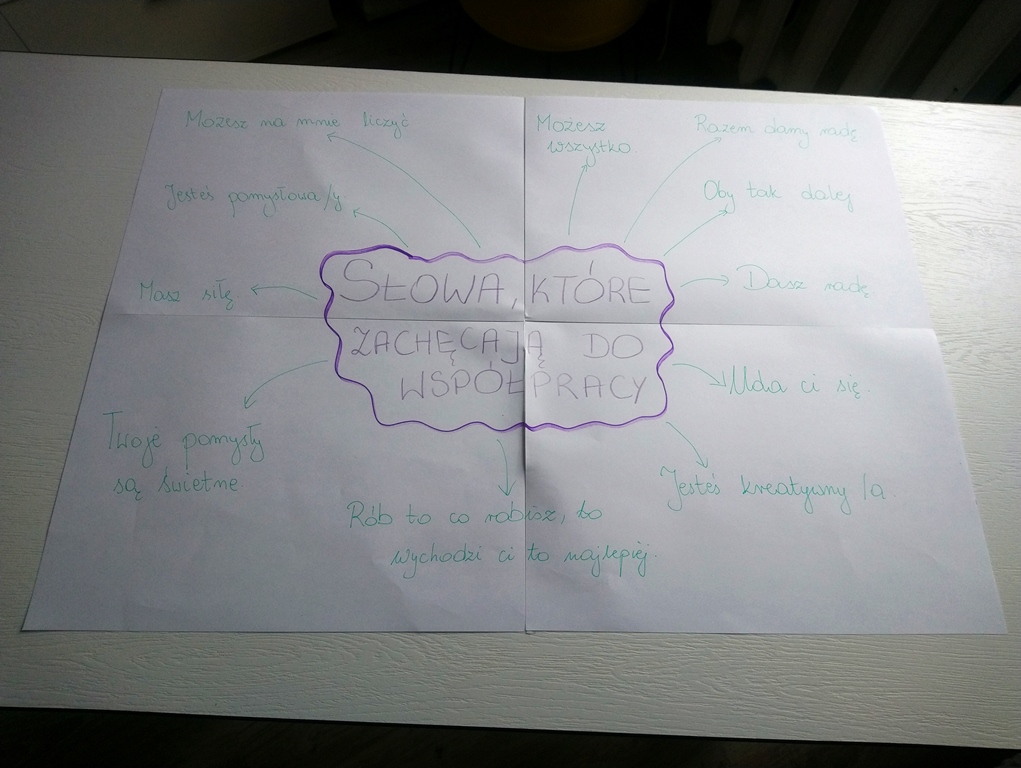 Możesz na mnie liczyć
Możesz
wszystko.
Razem damy radę
Jesteś pomysłowa/y
Oby tak dalej
Masz siłę.
SŁOWA, KTÓRE
ZACHĘCAJĄ DO
WSPÓŁPRACY
Dasz radę.
Uda ci się.
Twoje pomysły
są świetne.
Jesteś kreatywny/a.
Rób to co robisz, bo
wychodzi ci to najlepiej.